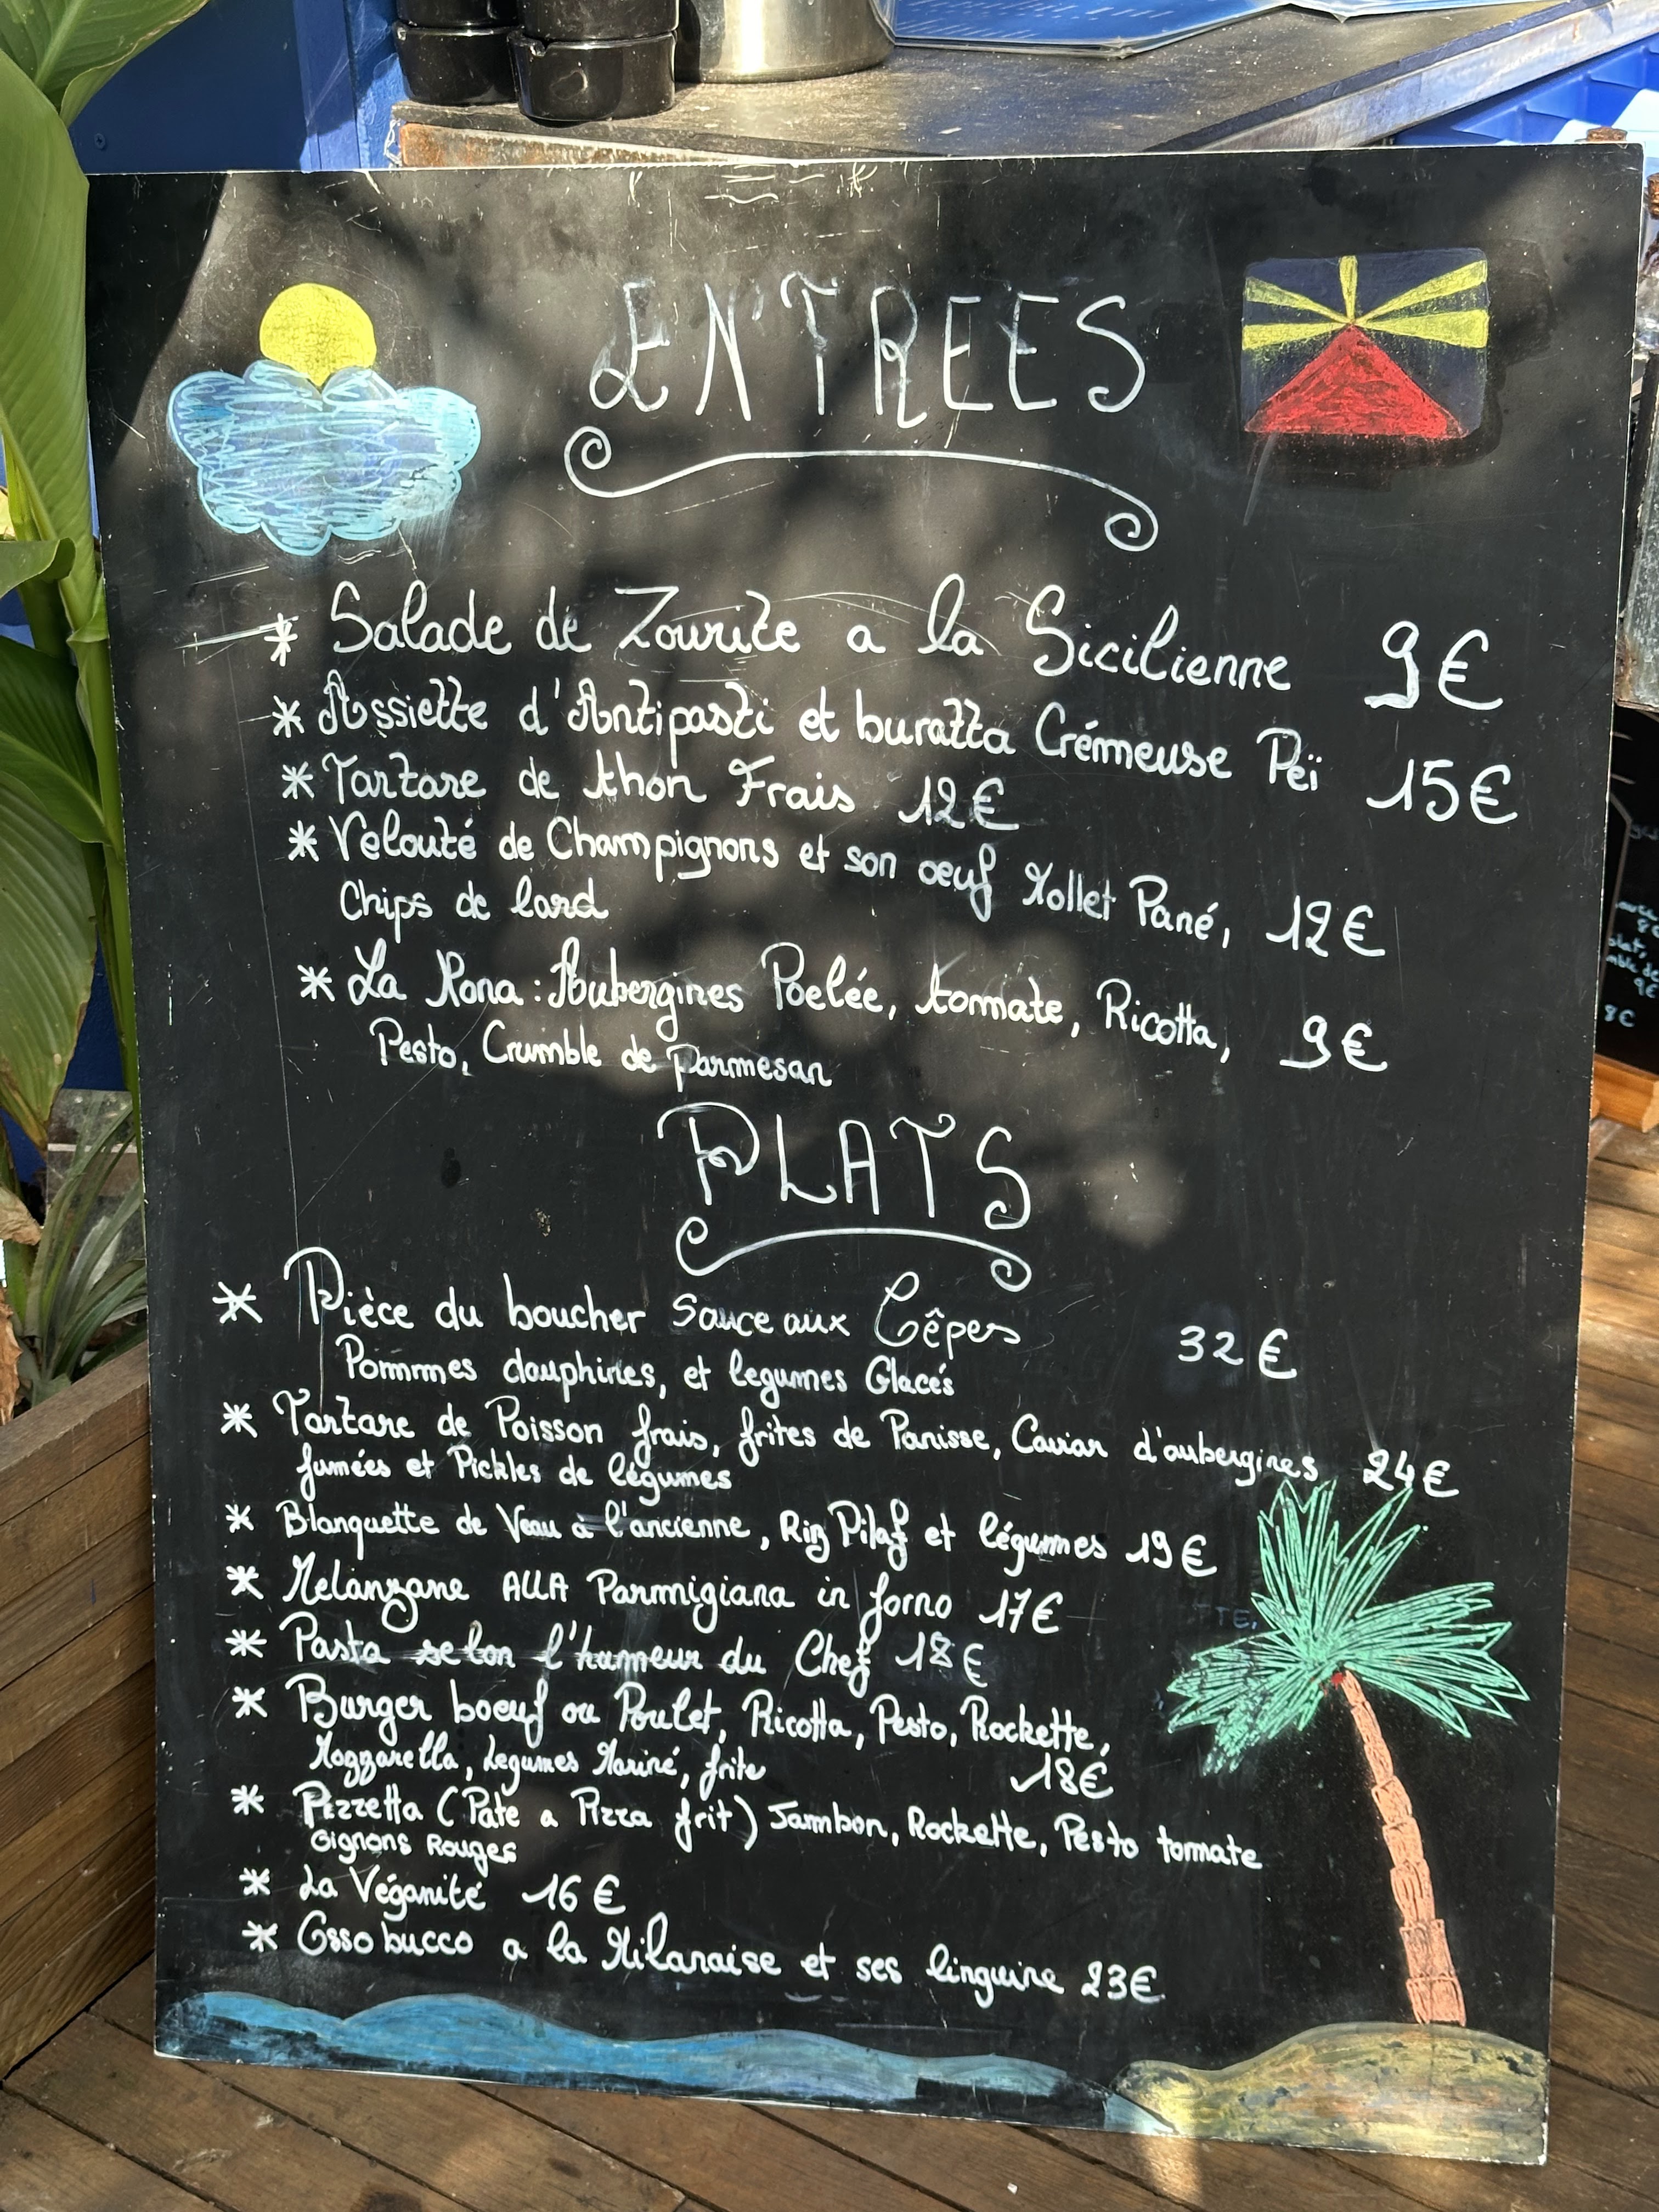 ENTREES
* Salade de Zourite a la Sicilienne 9€
* Assiette d'Antipasti et buratta Crémeuse Peï 15€
* Tartare de thon Frais 12€
* Velouté de Champignons et son oeuf Mollet Pané, 12€
Chips de lard
* La Nona : Aubergines Poelée, tomate, Ricotta, 9€
Pesto, Crumble de parmesan
PLATS
* Pièce du boucher Sauce aux Cêpes 32€
Pommes dauphines, et legumes Glacés
* Tartare de Poisson frais, frites de Panisse, Caviar d'aubergines 24€
fumées et Pickles de légumes
* Blanquette de Veau à l'ancienne, Riz Pilaf et légumes 19€
* Melanzane ALLA Parmigiana in forno 17€
* Pasta selon l'humeur du Chef 18€
* Burger boeuf ou Poulet, Ricotta, Pesto, Rockette,
Mozzarella, Legumes Mariné, frite 18€
* Pizzetta (Pate a Pizza frit) Jambon, Rockette, Pesto tomate
Oignons Rouges
* La Véganité 16€
* Osso bucco a la Milanaise et ses linguine 23€